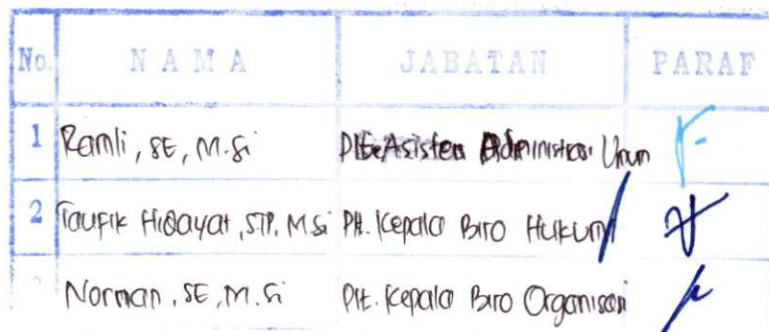 No. N A M A JABATAN PARAF
1 Ramli, SE, M.Si Plt. Asisten Administrasi Umum
2 Taufik Hidayat, STP, M.Si Plt. Kepala Biro Hukum
Norman, SE, M.Si Plt. Kepala Biro Organisasi